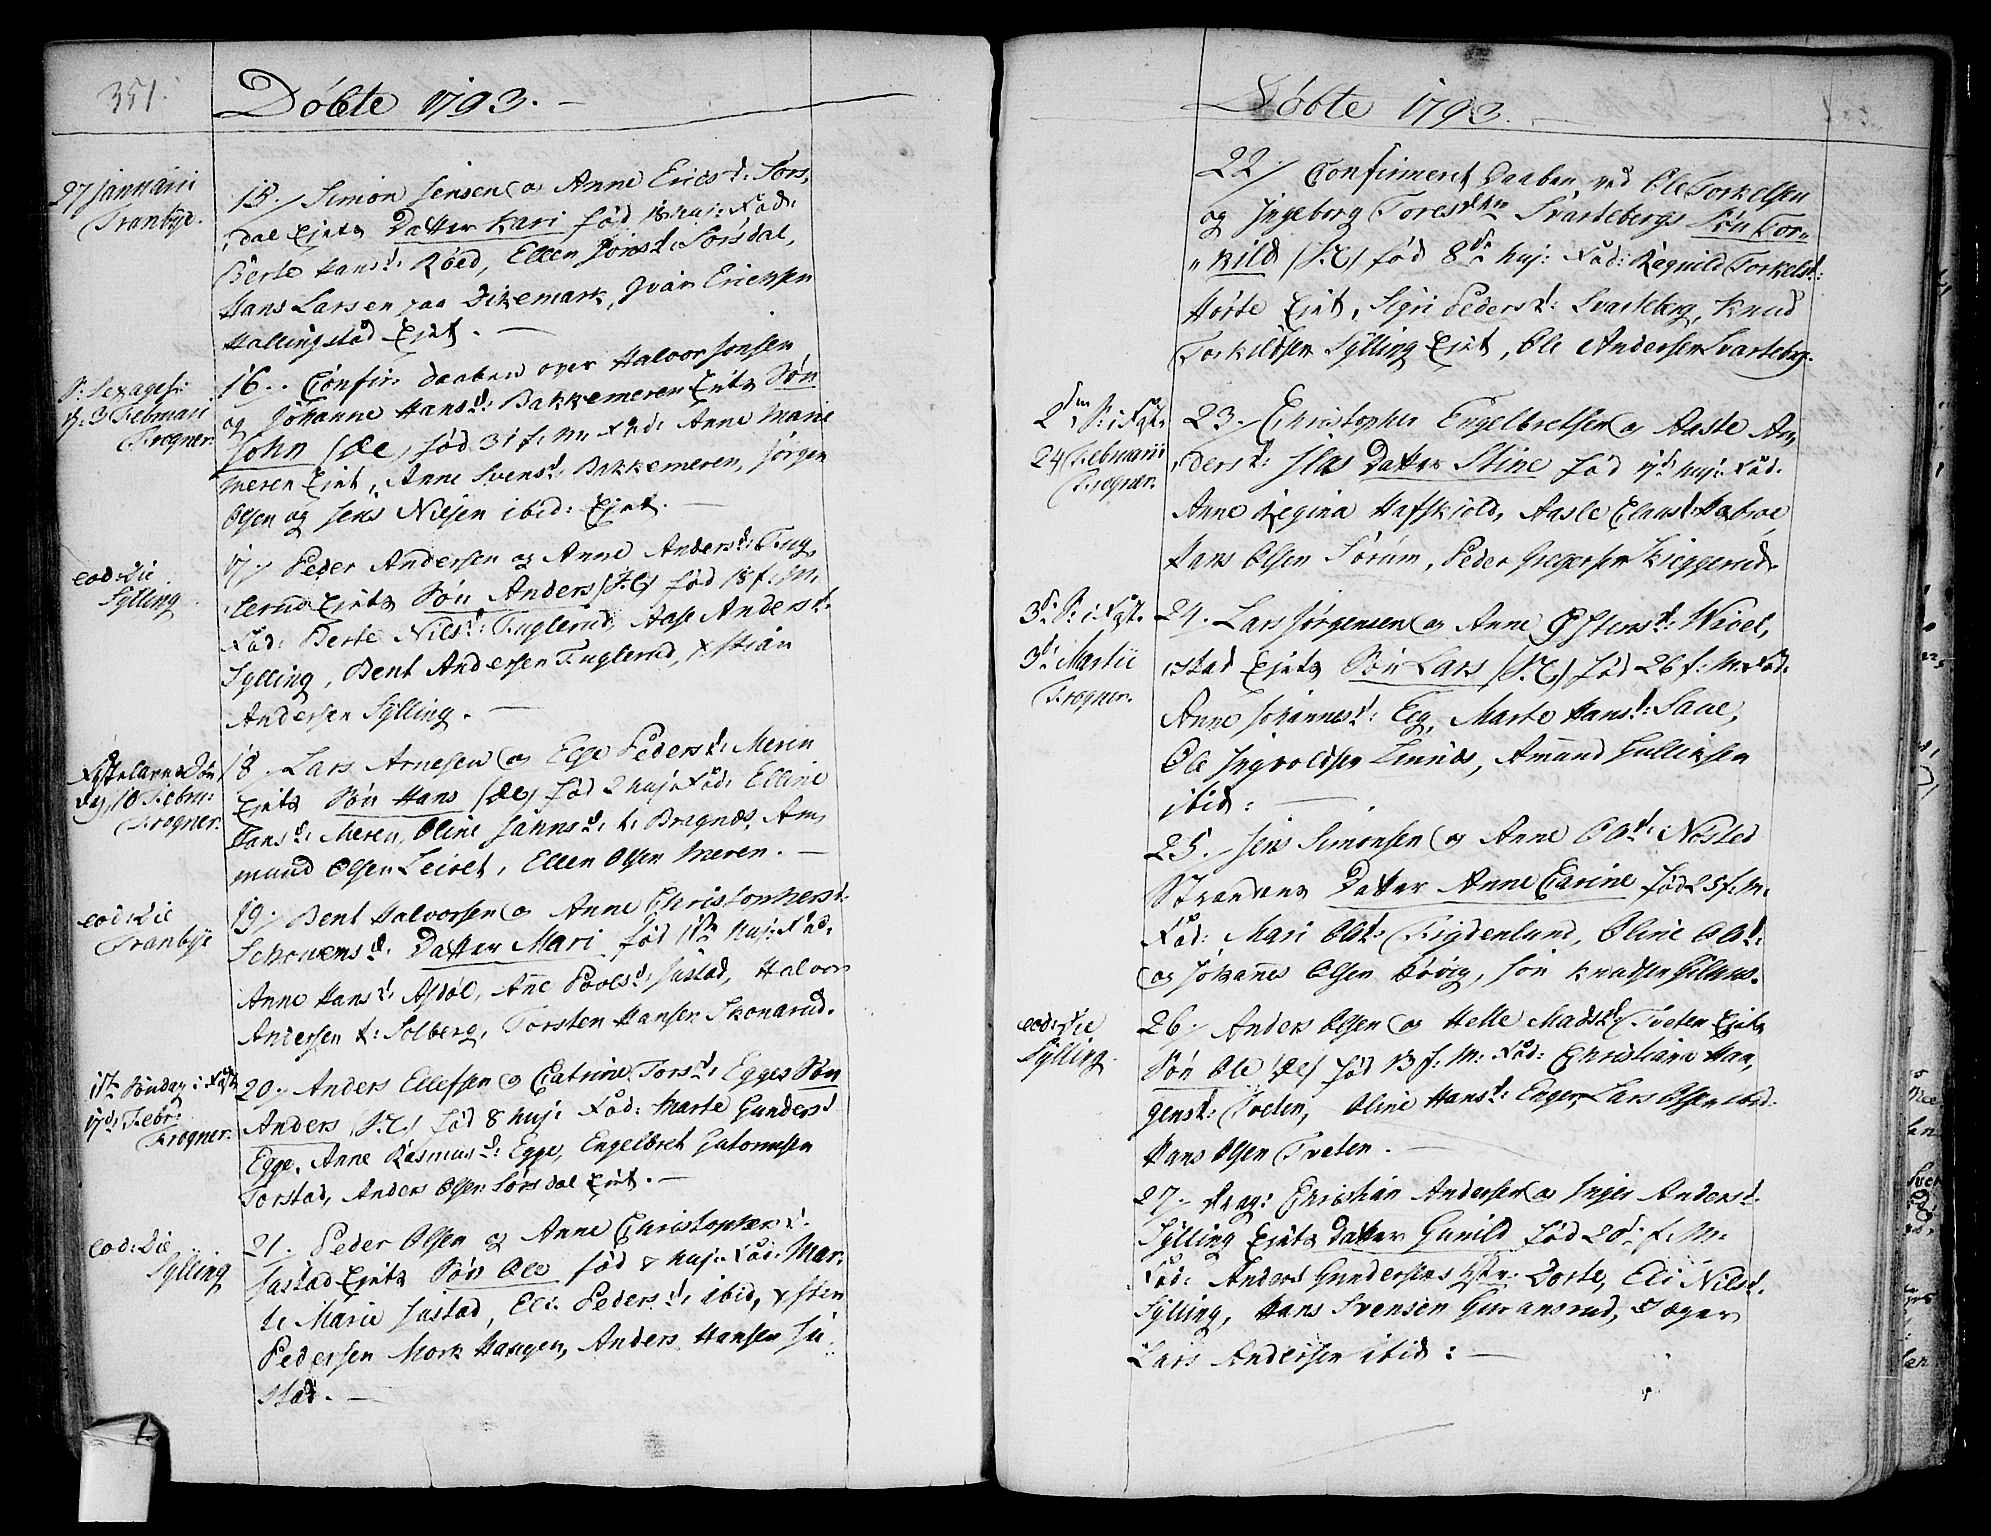 351.
Döbte 1793. —
27 Januarii
Tranbye.
15. / Simon Jensen og Anne Ericsd: Sørs,
dal Ejets Datter Kari fød 18 huj: Fad:
Berte Hansd: Röed, Ellen Jonsd: Sørsdal,
Hans Larsen paa Dikemark, Ivar Ericksen
Hallingstad Ejet. —
S: Sexages:
d: 3 Februari
Frogner.
16.. Confir: Daaben over Halvor Jonsen
og Johanne Hansd: Bakkemeren Ejets Søn
John (Æ) fød 31 f: M: Fad: Anne Marie
Meren Ejet, Anne Svensd: Bakkemeren, Jørgen
Olsen og Jens Nilsen ibid: Ejet. —
eod: Die
Sylling
17. / Peder Andersen og Anne Andersd: Fug,
lerud Ejets Søn Anders (S.C) fød 18 f: M:
Fad: Berte Nilsd: Fuglerud, Aase Andersd:
Sylling, Bent Andersen Fuglerud, Xstian
Andersen Sylling. —
Fastelavns Søn
dag 10 Febru:
Frogner.
18. Lars Arnesen og Else Pedersd: Meren
Ejets Søn Hans (Æ) fød 2 huj: Fad: Elline
Hansd: Meren, Oline Jannsd: t: Bragnæs, Am,
mund Olsen Leiret, Ellen Olsen Meren. —
eod: Die
Tranbye
19. / Bent Halvorsen og Anne Christophersd:
Schouensd: Datter Mari fød 1ste huj: Fad:
Anne Hansd: Asdöl, Anne Povelsd: Justad, Halvor
Andersen t: Solberg, Torsten Hansen Skonarud.
1ste Söndag i Fast
17d: Febr:
Frogner.
20. / Anders Ellefsen og Catrine Torsd: Egges Søn
Anders (S.C) fød 8 huj: Fad: Marte Gundersd
Egge, Anne Rasmusd: Egge, Engelbret Gutormsen
Torstad, Anders Olsen Sörsdal Ejet. —
eod: Die
Sylling
21. Peder Olsen og Anne Christophersd:
Justad Ejets Søn Ole fød huj: Fad: Mar-
te Marie Justad, Eli Pedersd: ibid, Xsten
Pedersen Mork Haugen, Anders Hansen Ju
stad. —
Döbte 1793. —
22 / Confirmeret Daaben ved Ole Torkelsen
og Ingeborg Toresd: Svartebergs Søn Tor-
"kild (S.C) fød 8de huj: Fad: Regnild Torkelsd:
Hörte Ejet, Sigri Pedersd: Svarteberg, Knud
Torkildsen Sylling Ejet, Ole Andersen Svarteberg.
2den S: i Fast.
24 Februarii
Frogner.
23. / Christopher Engelbretsen og Aaste An,
dersd: Jlas Datter Stine fød 17d: huj: Fad:
Anne Regina Hafskiold, Aasle Clausd: Habroe
Hans Olsen Sörum, Peder Gregersen Kieggerud.
3d: S: i Fast.
3d: Martii
Frogner.
24. Lars Jørgensen og Anne Østensd: Wivel,
stad Ejets Søn Lars (S.C) fød 26 f: M: Fad:
Anne Johannesd: Eeg, Marte Hansd: Saue,
Ole Ingvoldsen Linnes, Amund Gulliksen
ibid: —
25. Jens Simonsen og Anne Olsd: Nøsted
Strandens Datter Anne Carine fød 25 f: M:
Fad: Mari Olsd: Tigdenlund, Oline Olsd:
og Johannes Olsen Rövig, Jon Knudsen Gilhus.
eod: Die
Sylling.
26. / Anders Olsen og Helle Madsd: Tveten Ejets
Søn Ole (Æ) fød 13 f: M: Fad: Christiana Han,
gensd: Tveten, Oline Hansd: Enger, Lars Olsen ibid:
Hans Olsen Tveten. —
27. Præg: Christian Andersen og Inger Andersd:
Sylling Ejets Datter Gunild fød 20d: f: M:
Fad: Anders Gundersens Hstr: Dorte, Eli Nilsd:
Sylling, Hans Svensen Guransrud, og
Lars Andersen ibid: —